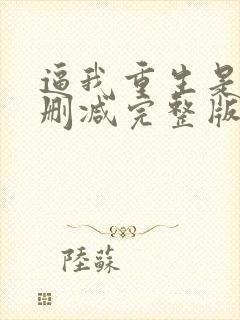 逼我重生是
删减完整版
陸蘇